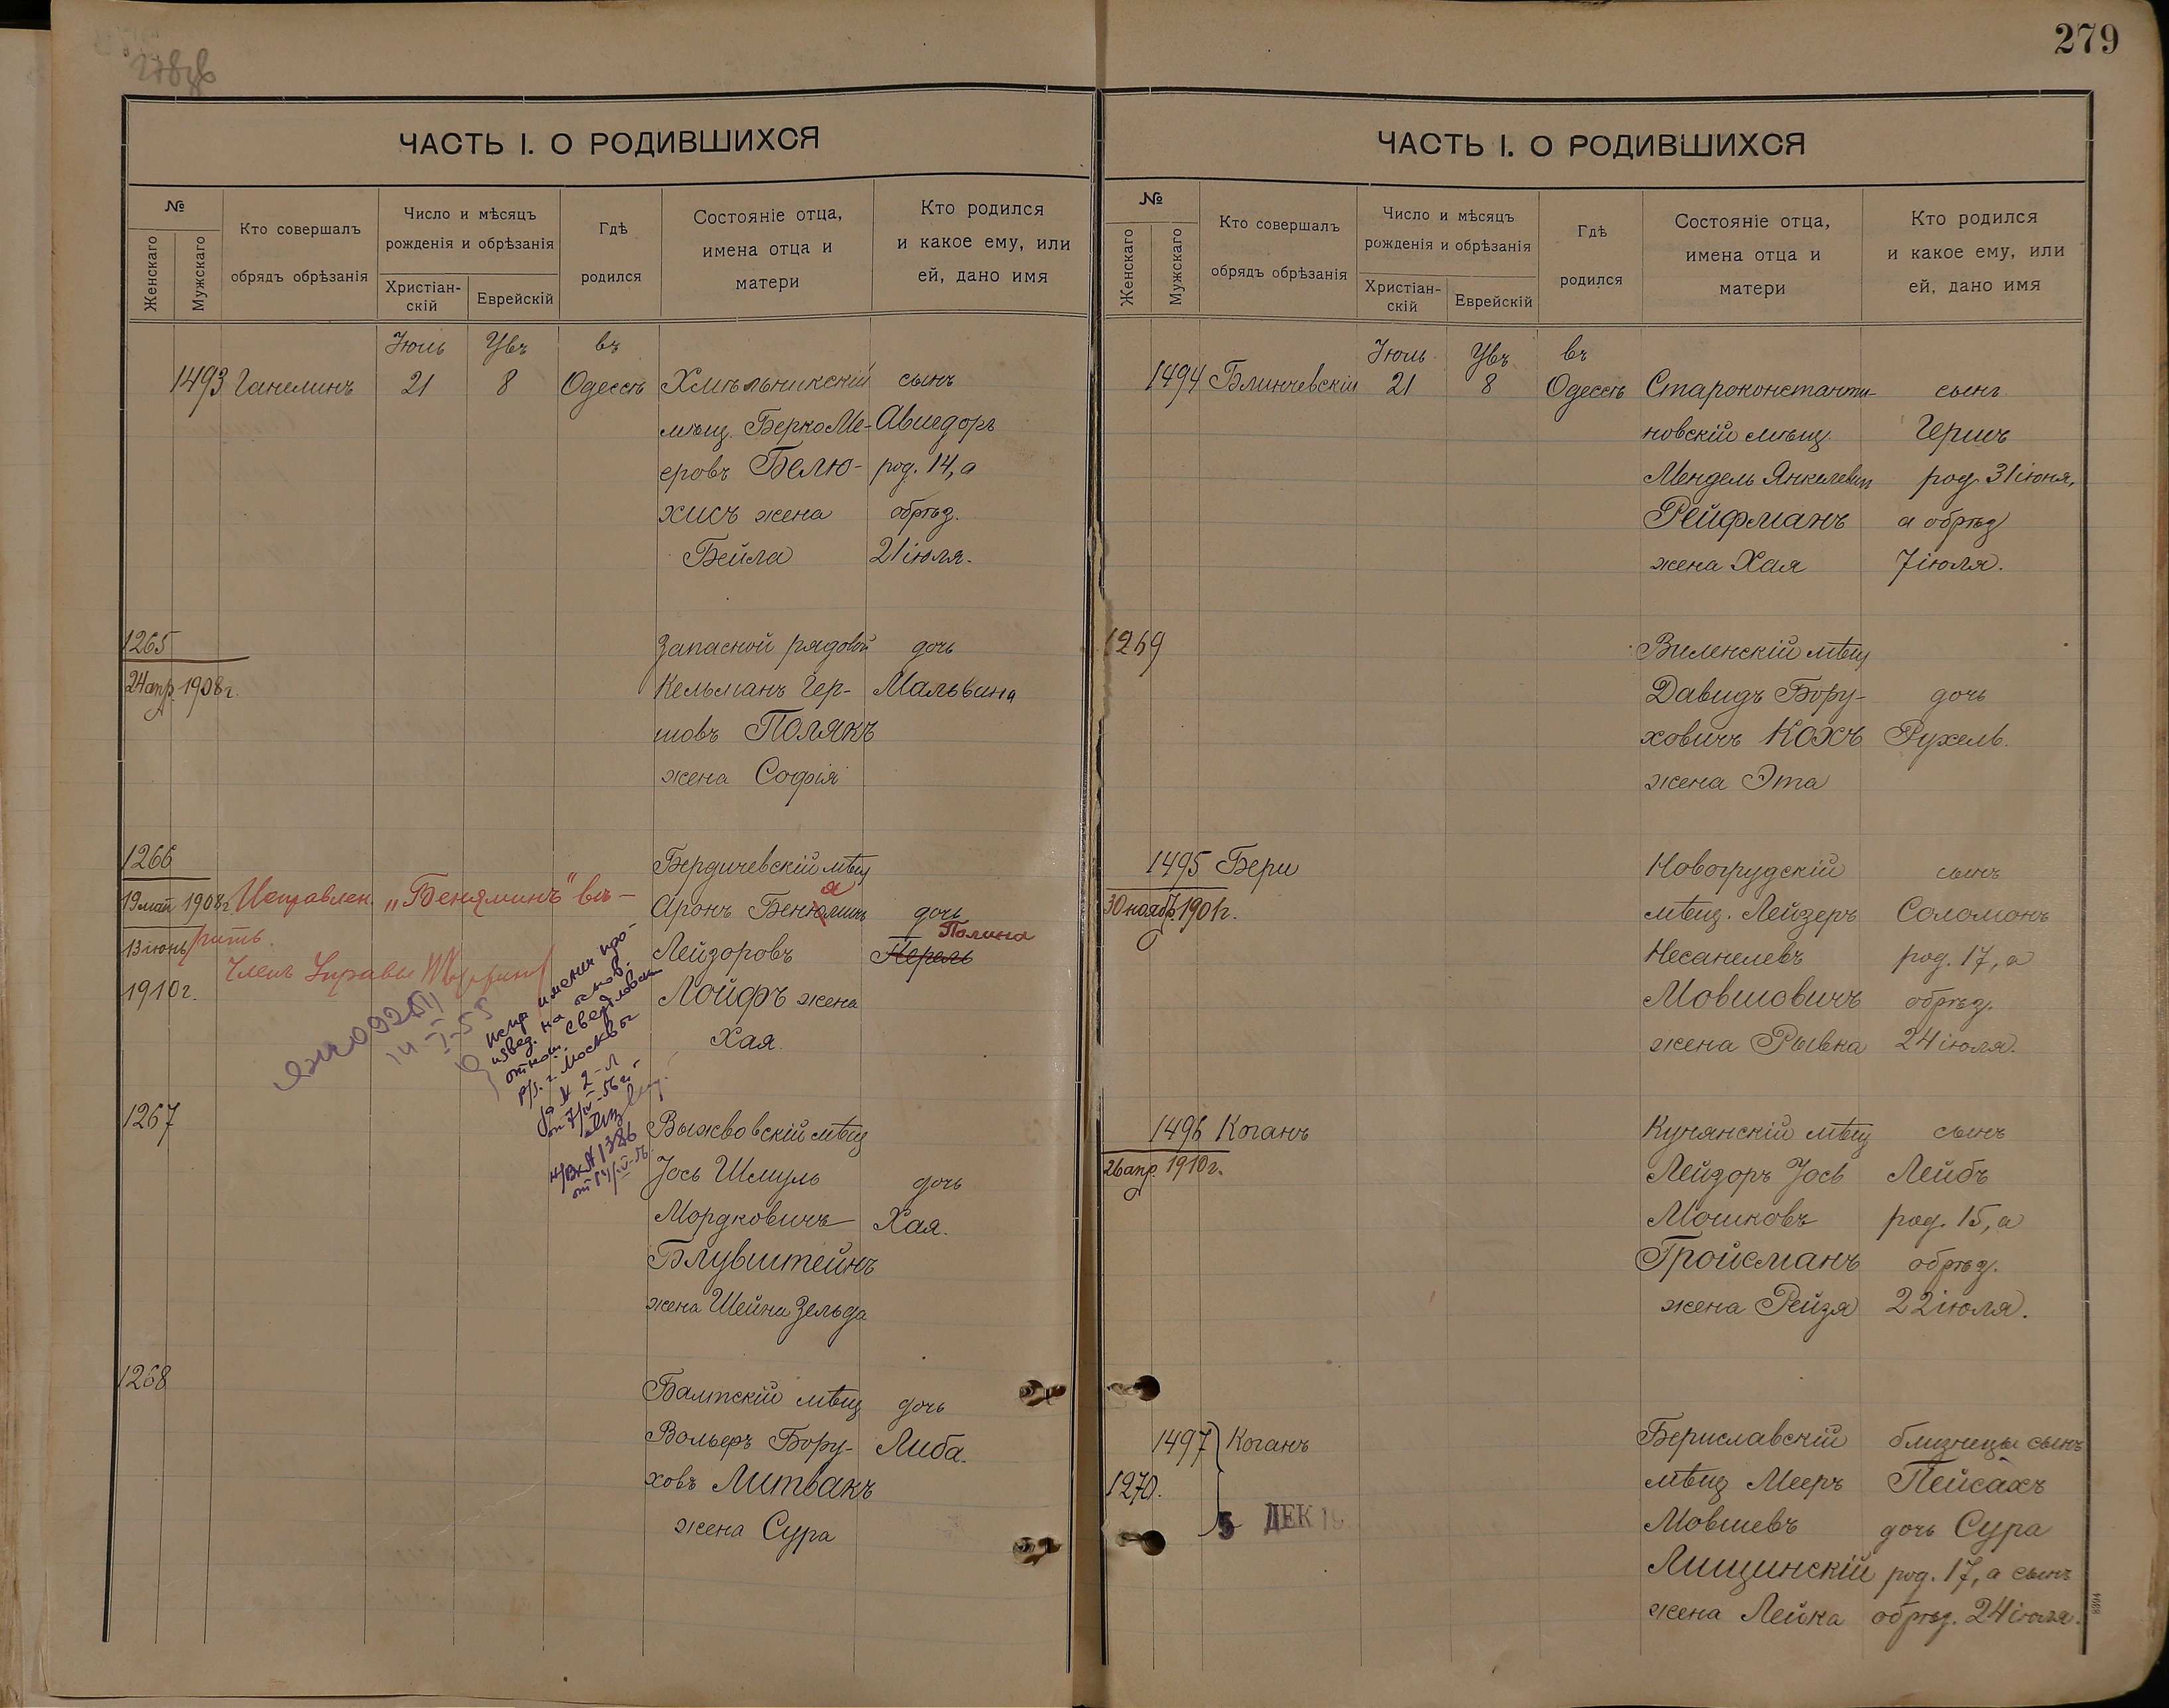 279
ЧАСТЬ I. О РОДИВШИХСЯ
№
Женскаго
Мужскаго
Кто совершалъ
обрядъ обрѣзанія
Число и мѣсяцъ
рожденія и обрѣзанія
Христіан-
скій
Еврейскій
Гдѣ
родился
Состояніе отца,
имена отца и
матери
Кто родился
и какое ему, или
ей, дано имя
Іюль Увъ въ
1493 Ганелинъ 21 8 Одессѣ Хмѣльникскій сынъ
мѣщ. Берко Ме- Авигдоръ
еровъ Белю- род. 14, а
хисъ жена обрѣз.
Бейла 21 іюля.
1265 Запасной рядовой дочь
24 апр. 1908 г. Кельманъ Гер- Мальвина
шовъ Полякъ
жена Софія
1266 Бердичевскій мѣщ
19 май 1908 г. Исправлен. „Беняминъ" вѣ-
Аронъ Бенюминъ дочь
я
13 іюнь рить. Полина
Лейзоровъ Перель
Членъ Управы
1910 г. Лойфъ жена
Хая.
испр имени
р/б. г. Москвы
от 7/IV-56 г.
1267 Выжвовскій мѣщ
Іось Шмуль дочь
Мордковичъ Хая.
Блувштейнъ
жена Шейна Зельда
1268 Балтскій мѣщ дочь
Вольфъ Бору- Либа.
ховъ Литвакъ
жена Сура
ЧАСТЬ I. О РОДИВШИХСЯ
№
Женскаго
Мужскаго
Кто совершалъ
обрядъ обрѣзанія
Число и мѣсяцъ
рожденія и обрѣзанія
Христіан-
скій
Еврейскій
Гдѣ
родился
Состояніе отца,
имена отца и
матери
Кто родился
и какое ему, или
ей, дано имя
Іюль Увъ въ
1494 Блинчевскій 21 8 Одессѣ Староконстанти- сынъ
новскій мѣщ Гершъ
Мендель Янкелевич род 31 іюня,
Рейфманъ а обрѣз
жена Хая 7 іюля.
1269 Виленскій мѣщ
Давидъ Бору- дочь
ховичъ Кохъ Рухель.
жена Эта
1495 Бери Новогрудскій сынъ
30 ноябр. 1901 г. мѣщ. Лейзеръ Соломонъ
Несанелевъ род. 17, а
Мовшовичъ обрѣз.
жена Рывка 24 іюля.
1496 Коганъ Кунянскій мѣщ сынъ
26 апр. 1910 г. Лейзоръ Іось Лейбъ
Мошковъ род. 15, а
Гройсманъ обрѣз.
жена Рейзя 22 іюля.
1497 Коганъ Бериславскій близнецы сынъ
1270. мѣщ Мееръ Пейсахъ
5 ДЕК 19
Мовшевъ дочь Сура
Лищинскій род. 17, а сынъ
жена Лейка обрѣз. 24 іюля.